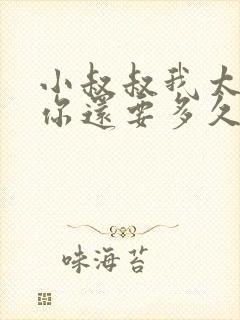 小叔叔我大
你還要多久
味海苔